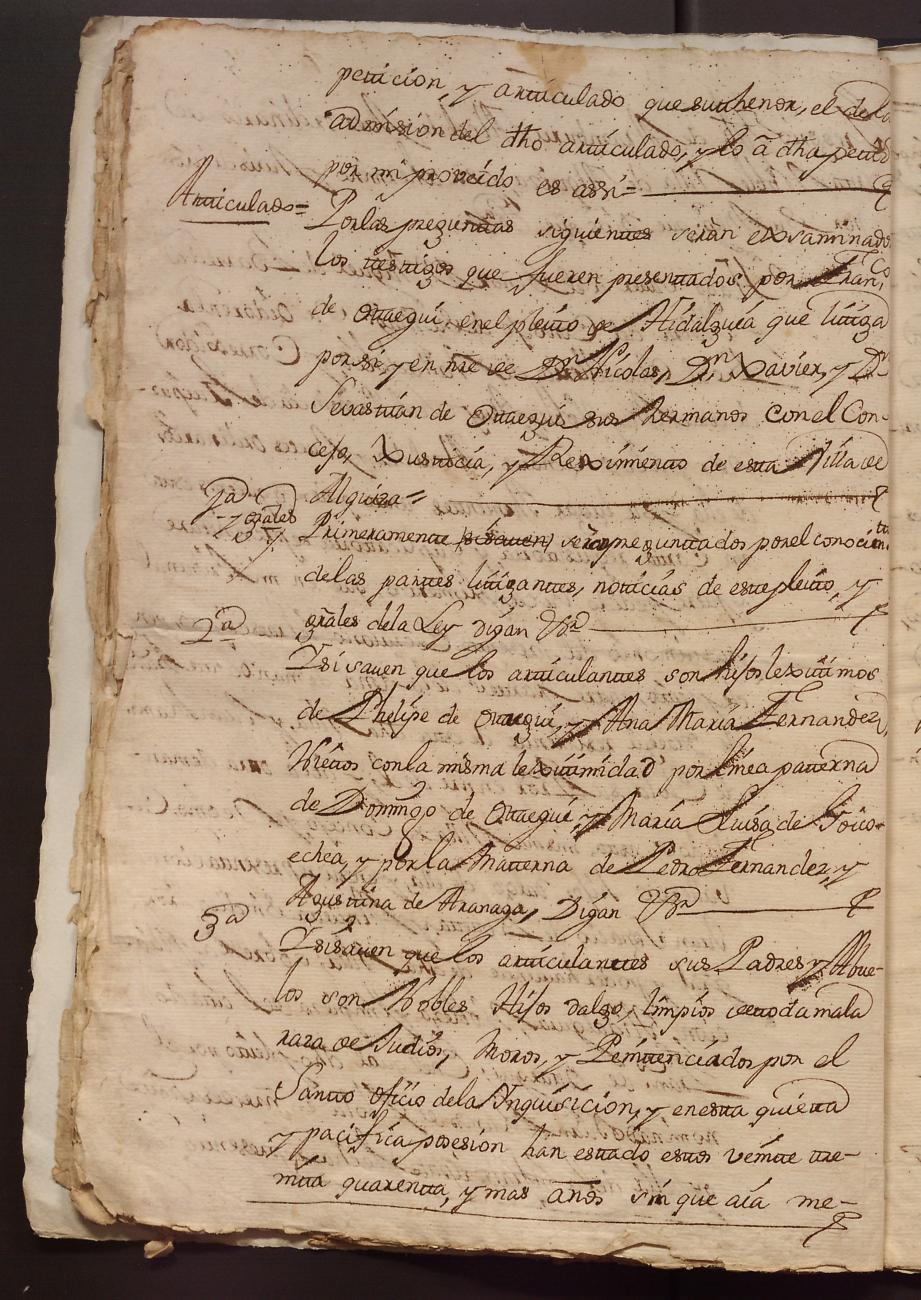 petticion, y artticulado que suthenor, el de la
admision del dho artticulado, y lo â dha pettn
por mi proveido es assi=
Artticulado=
Por las preguntas siguienttes seràn exsaminados
los ttesttigos que fueren presenttados por Franco
de Ottaegui, en el pleitto de Hidalguia que littiga
por si, y en nre de Dn Nicolas, Dn Xavier, y Dn
Sevasttian de Ottaegui sus Hermanos con el Con-
cejo, Xustticia, y Reximientto de estta Villa de
Alquiza=
1a y grales
Primeramente si sauen seràn preguntados por el conocimto
de las parttes littiganttes, notticias de estte pleitto, y
grâles dela Ley digan &a
2a
Y si sauen que los articulanttes son hijos lexittimos
de Phelipe de Ottaegui, y Ana Maria Fernandez,
Niettos con la misma lexittimidad por linea patterna
de Domingo de Ottaegui, y Maria Luisa de Goico-
echea, y por la Matterna de Pedro Fernandez, y
Agusttina de Aranaga, Digan &a
3a
Y si sauen que los artticulanttes sus Padres y Abue-
los son Nobles Hijos dalgo, limpios de ttoda mala
raza de Judios, Moros, y Penittenciados por el
Santto Oficio dela Inquisicion, y en estta quietta
y pacifica posesion han esttado esttos veintte tre-
intta quarentta, y mas años sin que aia me-